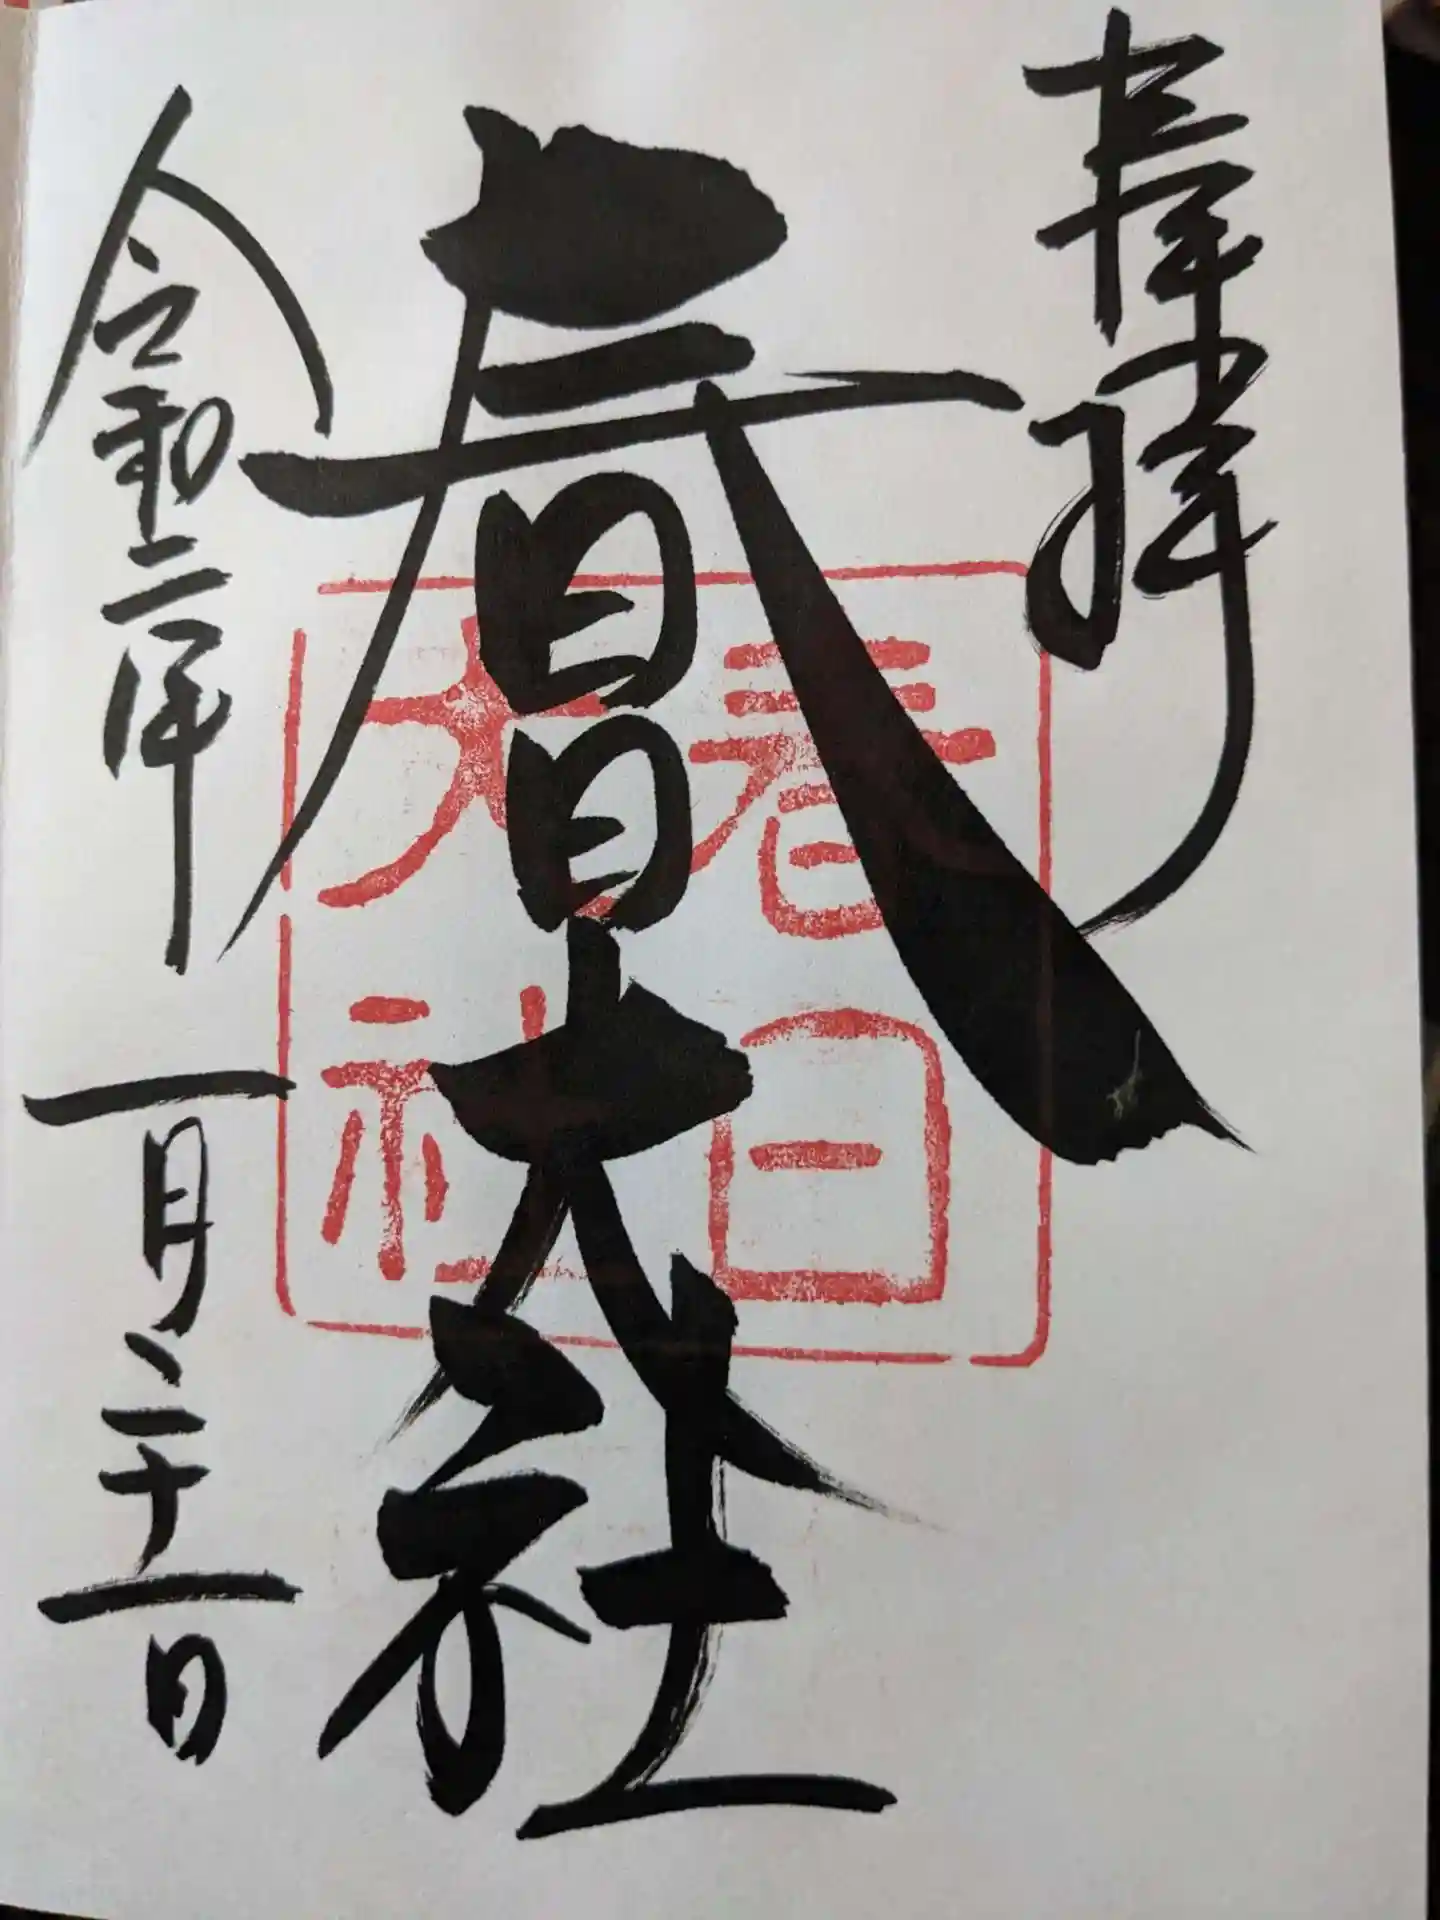 奉拝
春日大社
春日
大社
令和二年一月二十一日